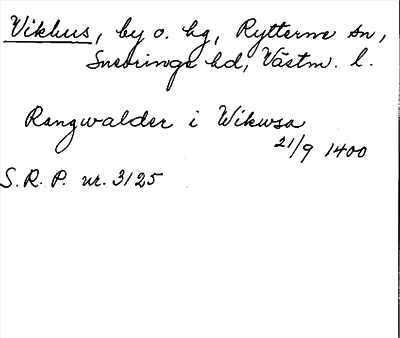 Vikhus, by o. hg, Rytterne sn,
Snevringe hd, Västm. l.
Rangwalder i Wikwsa
21/9 1400
S.R.P. nr. 3125